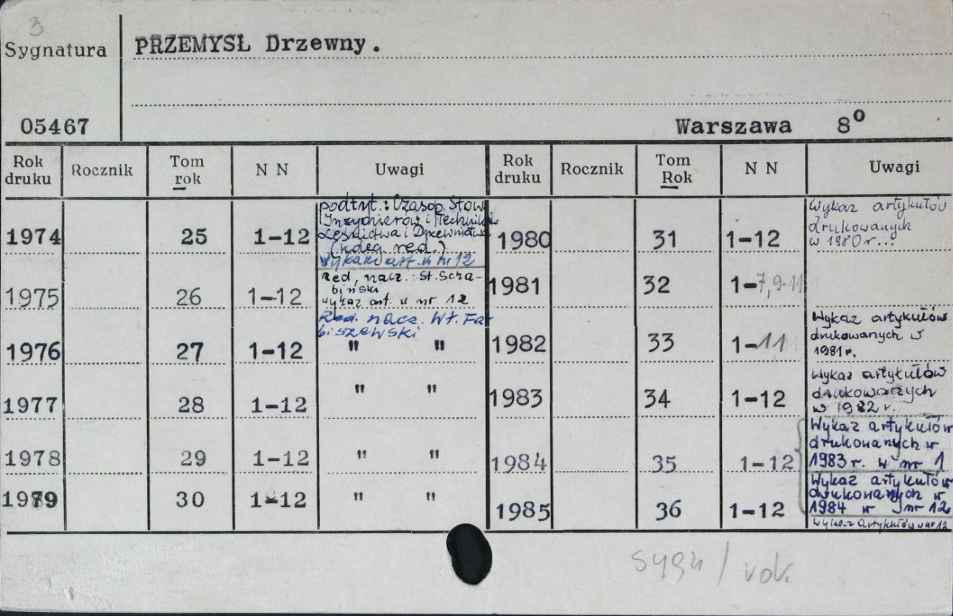 3
Sygnatura PRZEMYSŁ Drzewny.
05467 Warszawa 8°
Rok druku Rocznik Tom rok N N Uwagi Rok druku Rocznik Tom Rok N N Uwagi
podtyt.: Czasop. Stow.
Inżynierów i Techników
Leśnictwa i Drzewnictwa
red.)
1974 25 1-12 Wykaz art. w nr 12
Red. nacz.: St. Scra-
biński
1975 26 1-12 wykaz art. w nr 12
Red. nacz. Wł. Fa-
biszewski
1976 27 1-12 " "
1977 28 1-12 " "
1978 29 1-12 " "
1979 30 1-12 " "
Wykaz artykułów
drukowanych
1980 31 1-12 w 1980 r..
1981 32 1-7,9-11
Wykaz artykułów
drukowanych w
1982 33 1-11 1981 r.
Wykaz artykułów
drukowanych
1983 34 1-12 w 1982 r.
Wykaz artykułów
drukowanych w
1984 35 1-12 1983 r. w nr 1
Wykaz artykułów
drukowanych w
1985 36 1-12 1984 w nr 12
Wykaz artykułów w nr 12
sygn / rok.